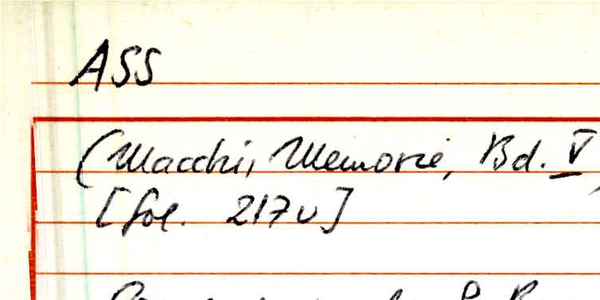 ASS
(Macchi, Memorie, Bd. V,
[fol. 217v]